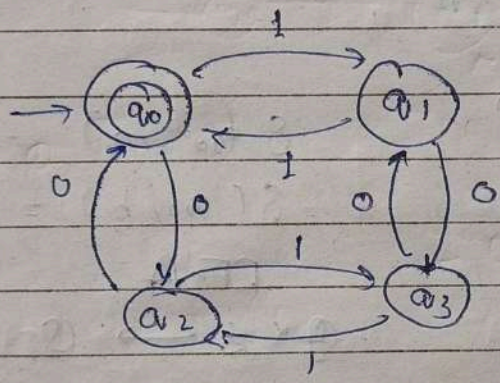 1
q0
q1
1
0
0
0
0
1
q2
q3
1